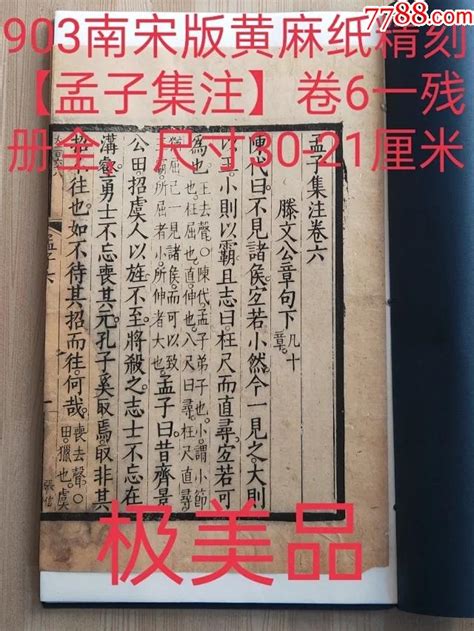 7788.com
903南宋版黄麻纸精刻
【孟子集注】卷6一残
册全。尺寸30-21厘米
孟子集注卷六
滕文公章句下 凡十章。
陳代曰不見諸侯宜若小然今一見之大則
以王。小則以霸且志曰枉尺而直尋宜若可
為也。王去聲○陳代孟子弟子也小謂小節也枉屈也直伸也八尺曰尋枉尺直尋
猶屈己一見諸侯而可以致王霸所屈者小所伸者大也孟子曰昔齊景
公田。招虞人以旌不至將殺之志士不忘在
溝壑勇士不忘喪其元孔子奚取焉取非其
招不往也如不待其招而往何哉。喪去聲○田獵也虞
极美品